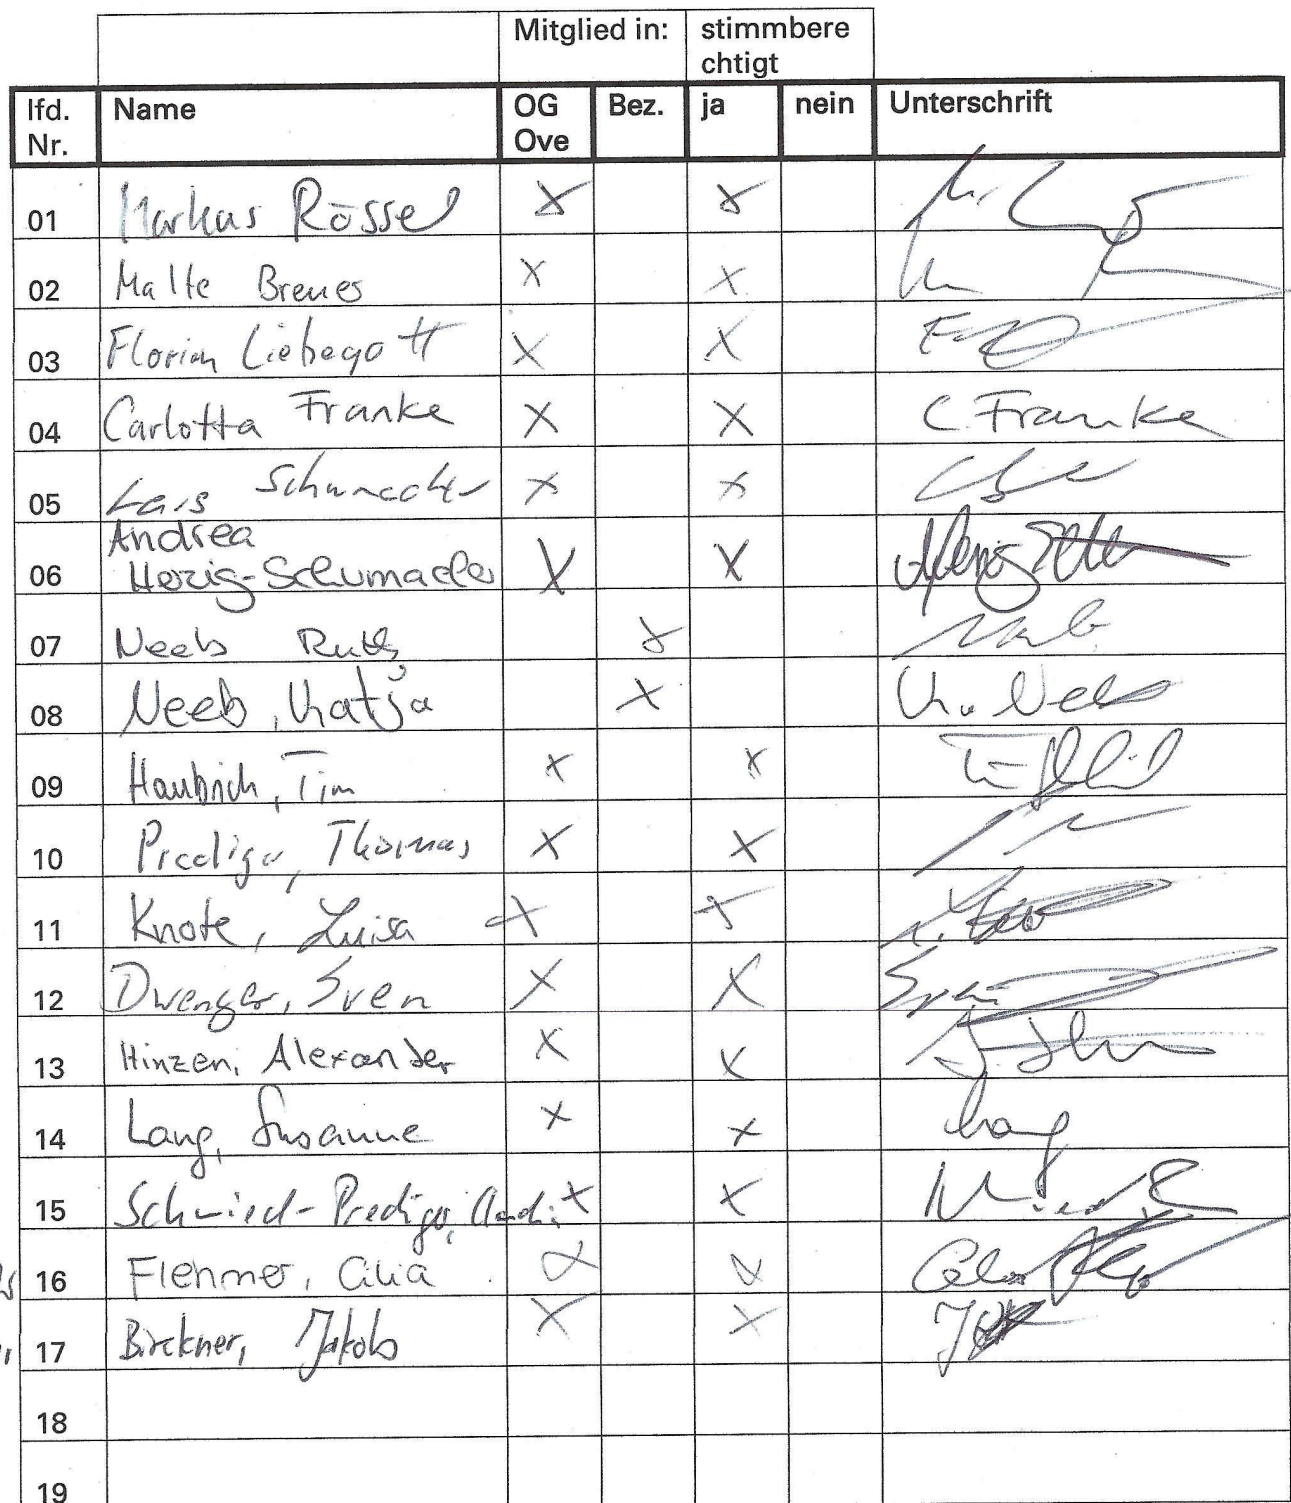 Mitglied in: stimmbere
chtigt
lfd. Name OG Bez. ja nein Unterschrift
Nr. Ove
01 Markus Rössel x x
02 Malte Brenes x x
03 Florian Liebegott x x
04 Carlotta Franke x x C. Franke
05 Lars Schumacher x x
Andrea
06 Herzig-Schumacher x x
07 Neeb Ruth x
08 Neeb, Katja x K. Neeb
09 Haubrich, Tim x x
10 Prediger, Thomas x x
11 Knote, Luisa x x
12 Dwenger, Sven x x
13 Hinzen, Alexander x x
14 Lang, Susanne x x Lang
15 Schmied-Prediger, x x
16 Flehmer, Cilia x x
17 Birckner, Jakob x x
18
19